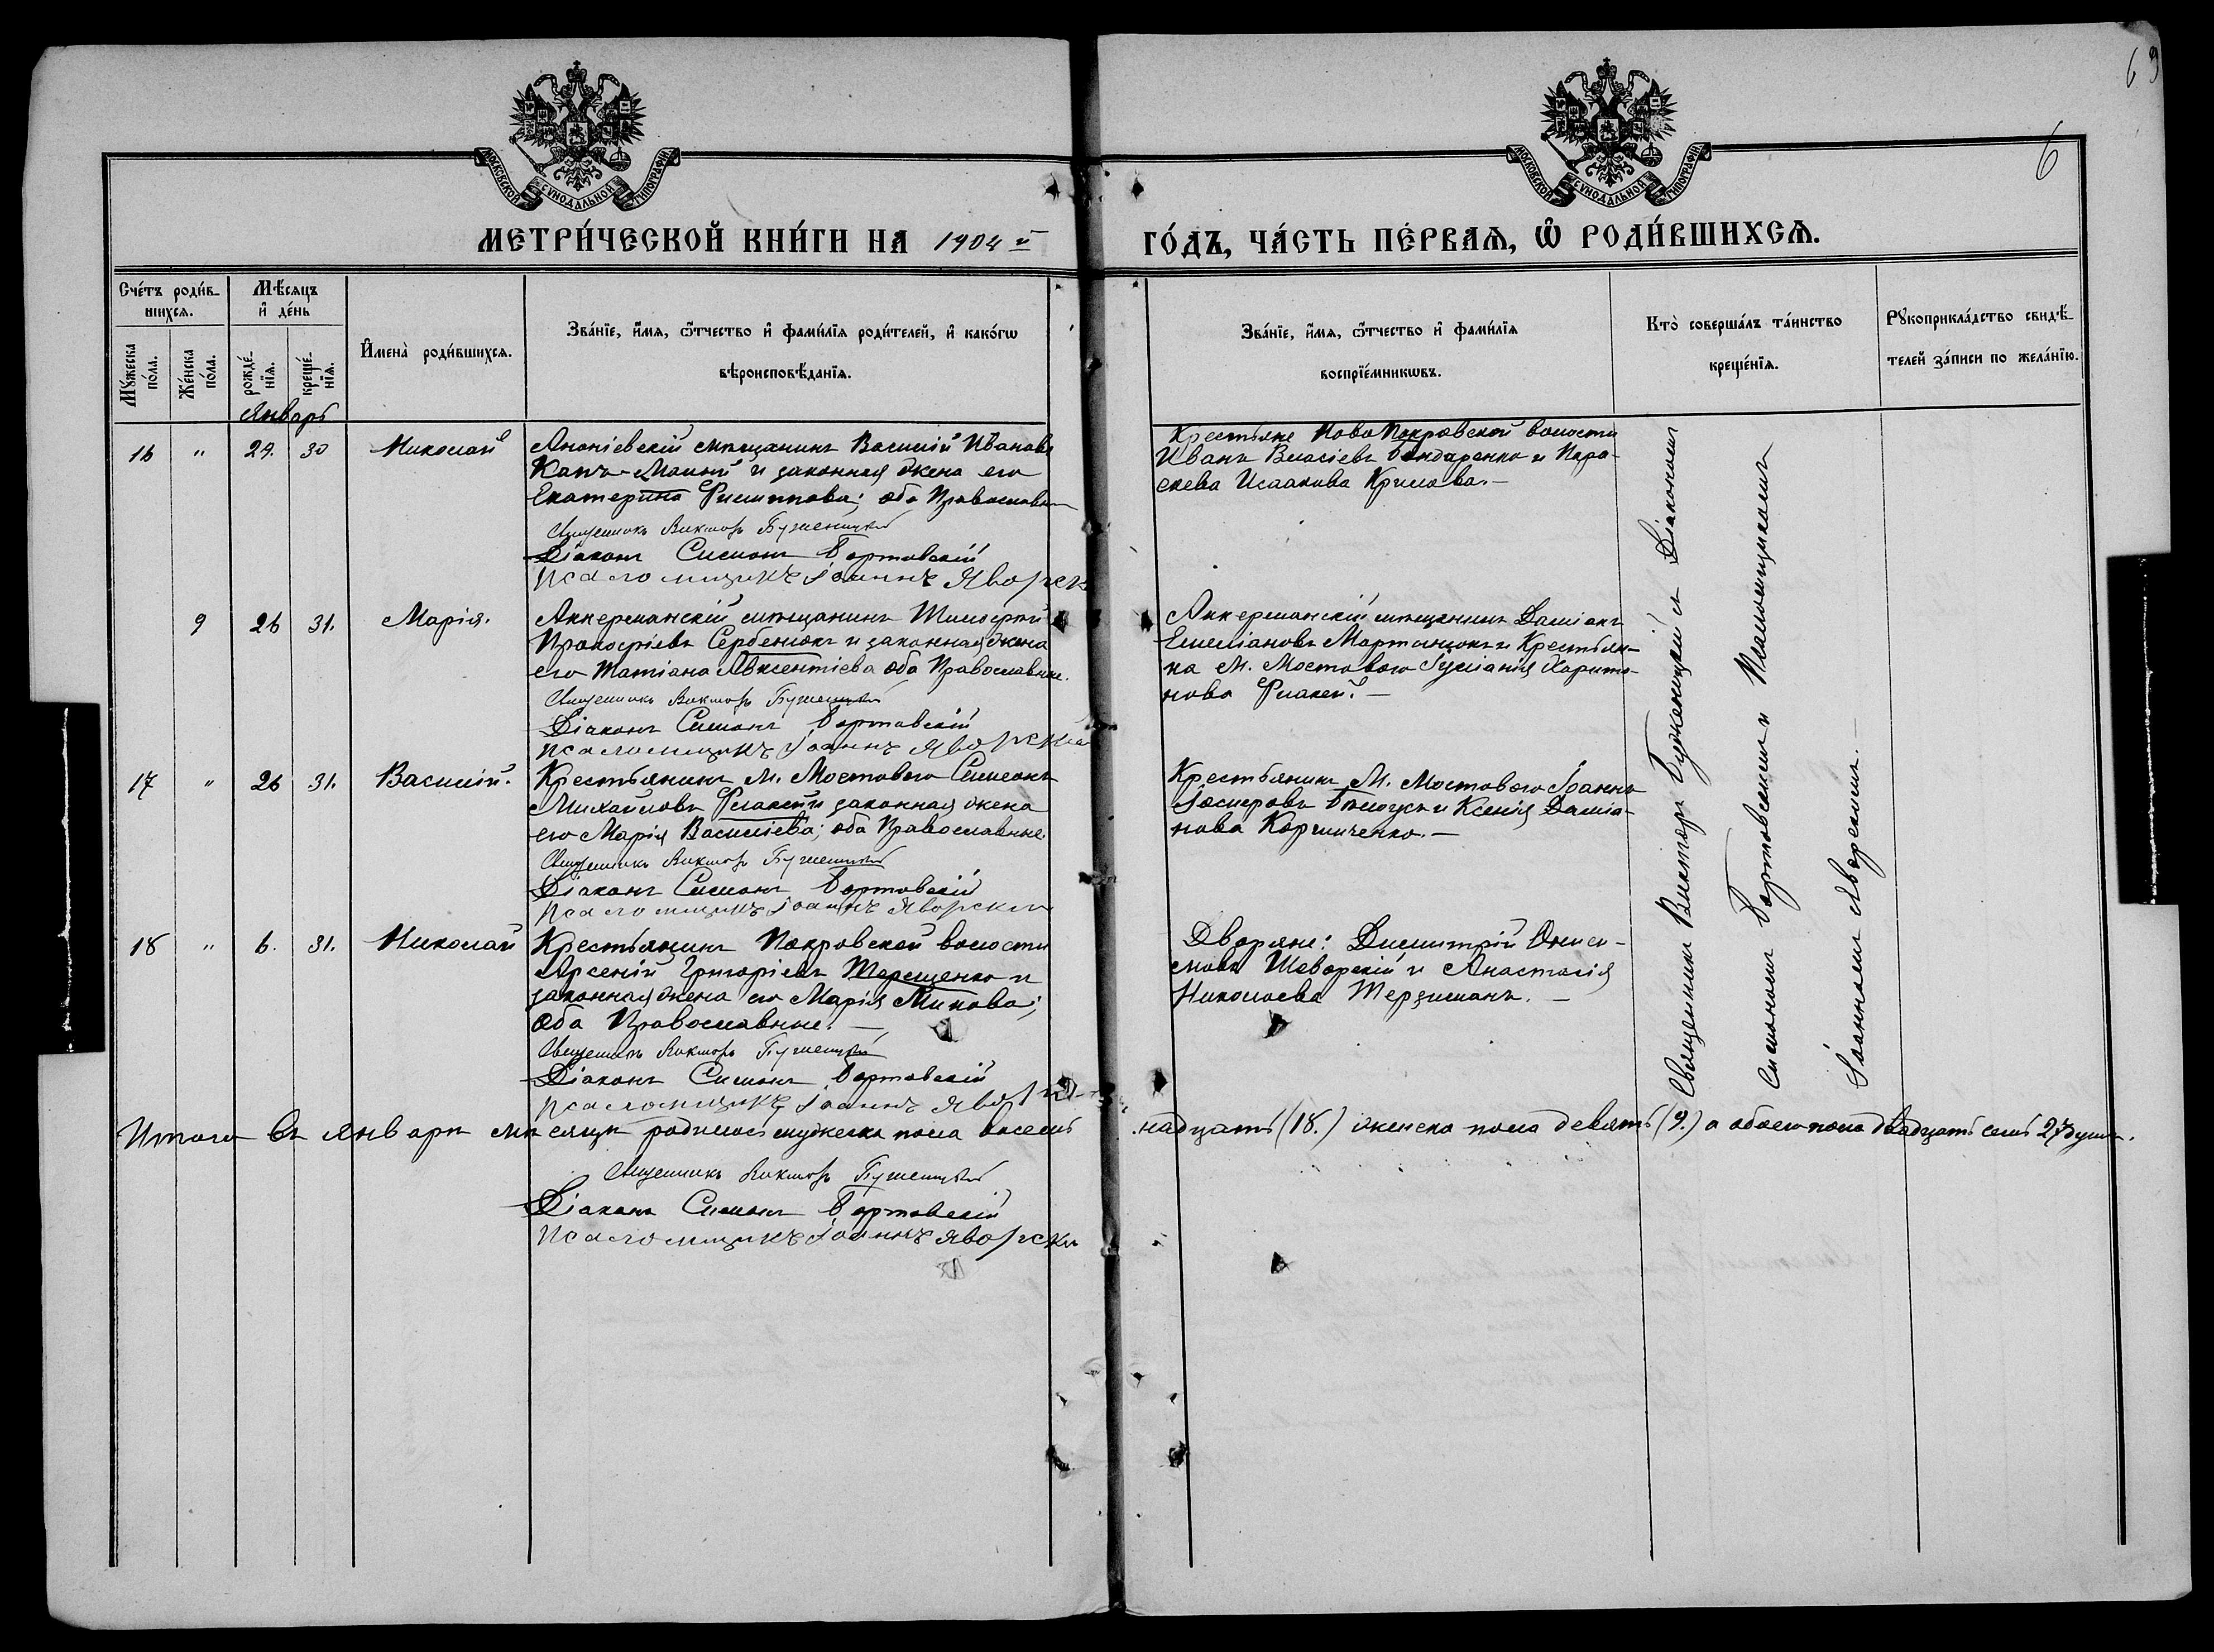 69
6
МОСКОВСКОЙ СѴНОДАЛЬНОЙ ТИПОГРАФІИ
МОСКОВСКОЙ СѴНОДАЛЬНОЙ ТИПОГРАФІИ
МЕТРИ́ЧЕСКОЙ КНИ́ГИ НА 1904 й
ГО́ДЪ, ЧА́СТЬ ПЕ́РВАѦ, Ѽ РОДИ́ВШИХСѦ.
Сче́тъ роди́в-
шихся.
Му́жеска
по́ла.
Же́нска
по́ла.
Мѣ́сяцъ
и҆ де́нь
рожде́-
нїя.
креще́-
нїя.
И҆мена̀ роди́вшихся.
Зва́нїе, и҆́мя, ѻ҆́тчество и҆ фами́лїя роди́телей, и҆ како́гѡ
вѣроисповѣ́данїя.
Зва́нїе, и҆́мя, ѻ҆́тчество и҆ фами́лїя
воспрїе́мникѡвъ.
Кто̀ соверша́лъ та́инство
креще́нїя.
Рꙋкоприкла́дство свидѣ́-
телей за́писи по жела́нїю.
Январь
16 " 29. 30 Николай
Ананіевскій мѣщанинъ Василій Ивановъ
и законная жена его
Екатерина Филиппова; оба Православн
Священникъ Викторъ Буженицкій
Діаконъ Симонъ Бортовскій
Псаломщикъ Іоаннъ Яворск
Крестьяне Ново Покровской волости
Иванъ Власіевъ Бондаренко и Пара-
скева Исаакова Крилова.—
9 26 31. Марія.
Аккерманскій мѣщанинъ Тимофей
Прокофіевъ Сербенюкъ и законная жена
его Татіана Авксентіева оба Православные.
Священникъ Викторъ Буженицкій
Діаконъ Симонъ Бортовскій
Псаломщикъ Іоаннъ Яворски
Аккерманскій мѣщанинъ Даміанъ
Емеліановъ Мартынюкъ и Крестьян-
ка М. Мостового Іуліанія Харито-
нова Флакей.—
17 " 26 31. Василій.
Крестьянинъ М. Мостового Симеонъ
Михайловъ Флакей и законная жена
его Марія Василіева; оба Православные.
Священникъ Викторъ Буженицкій
Діаконъ Симонъ Бортовскій
Псаломщикъ Іоаннъ Яворски
Крестьянинъ М. Мостового Іоаннъ
и Ксенія Даміа-
нова Корниченко.—
18 " 6. 31. Николай
Крестьянинъ Покровской волости
Арсеній Григоріевъ Терещенко и
законная жена его Марія Минова;
оба Православные.—
Священникъ Викторъ Буженицкій
Діаконъ Симонъ Бортовскій
Псаломщикъ Іоаннъ Яворск
Дворяне: Димитрій Ониси-
мовъ Шеворскій и Анастасія
Николаева Терзиманъ.—
Священникъ Викторъ Буженицкій съ Діакономъ
Симономъ Бортовскимъ и Псаломщикомъ
Іоанномъ Яворскимъ.—
Итого въ Январѣ мѣсяцѣ родилось мужеска пола восемь надцать (18.) женска пола девять (9.) а обоего пола двадцать семь 27 душъ.
Священникъ Викторъ Буженицкій
Діаконъ Симонъ Бортовскій
Псаломщикъ Іоаннъ Яворски